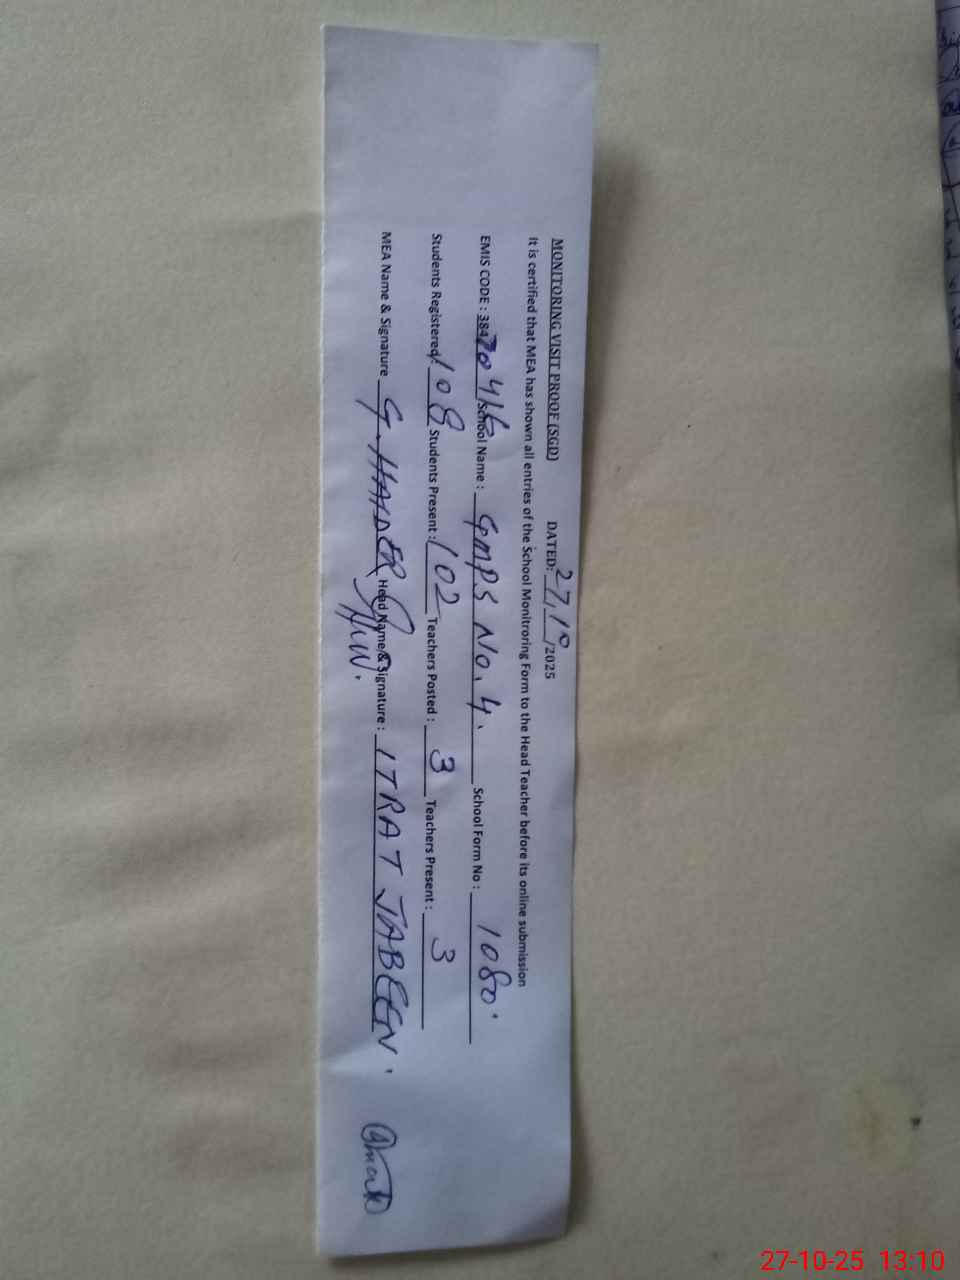 MONITORING VISIT PROOF (SGD) DATED: 27,10/2025
It is certified that MEA has shown all entries of the School Monitroring Form to the Head Teacher before its online submission
EMIS CODE : 38470416 School Name : GMPS No. 4. School Form No : 1080.
Students Registered: 108 Students Present : 102 Teachers Posted : 3 Teachers Present : 3
MEA Name & Signature G. HAIDER Head Name & Signature : ITRAT JABEEN.
27-10-25 13:10